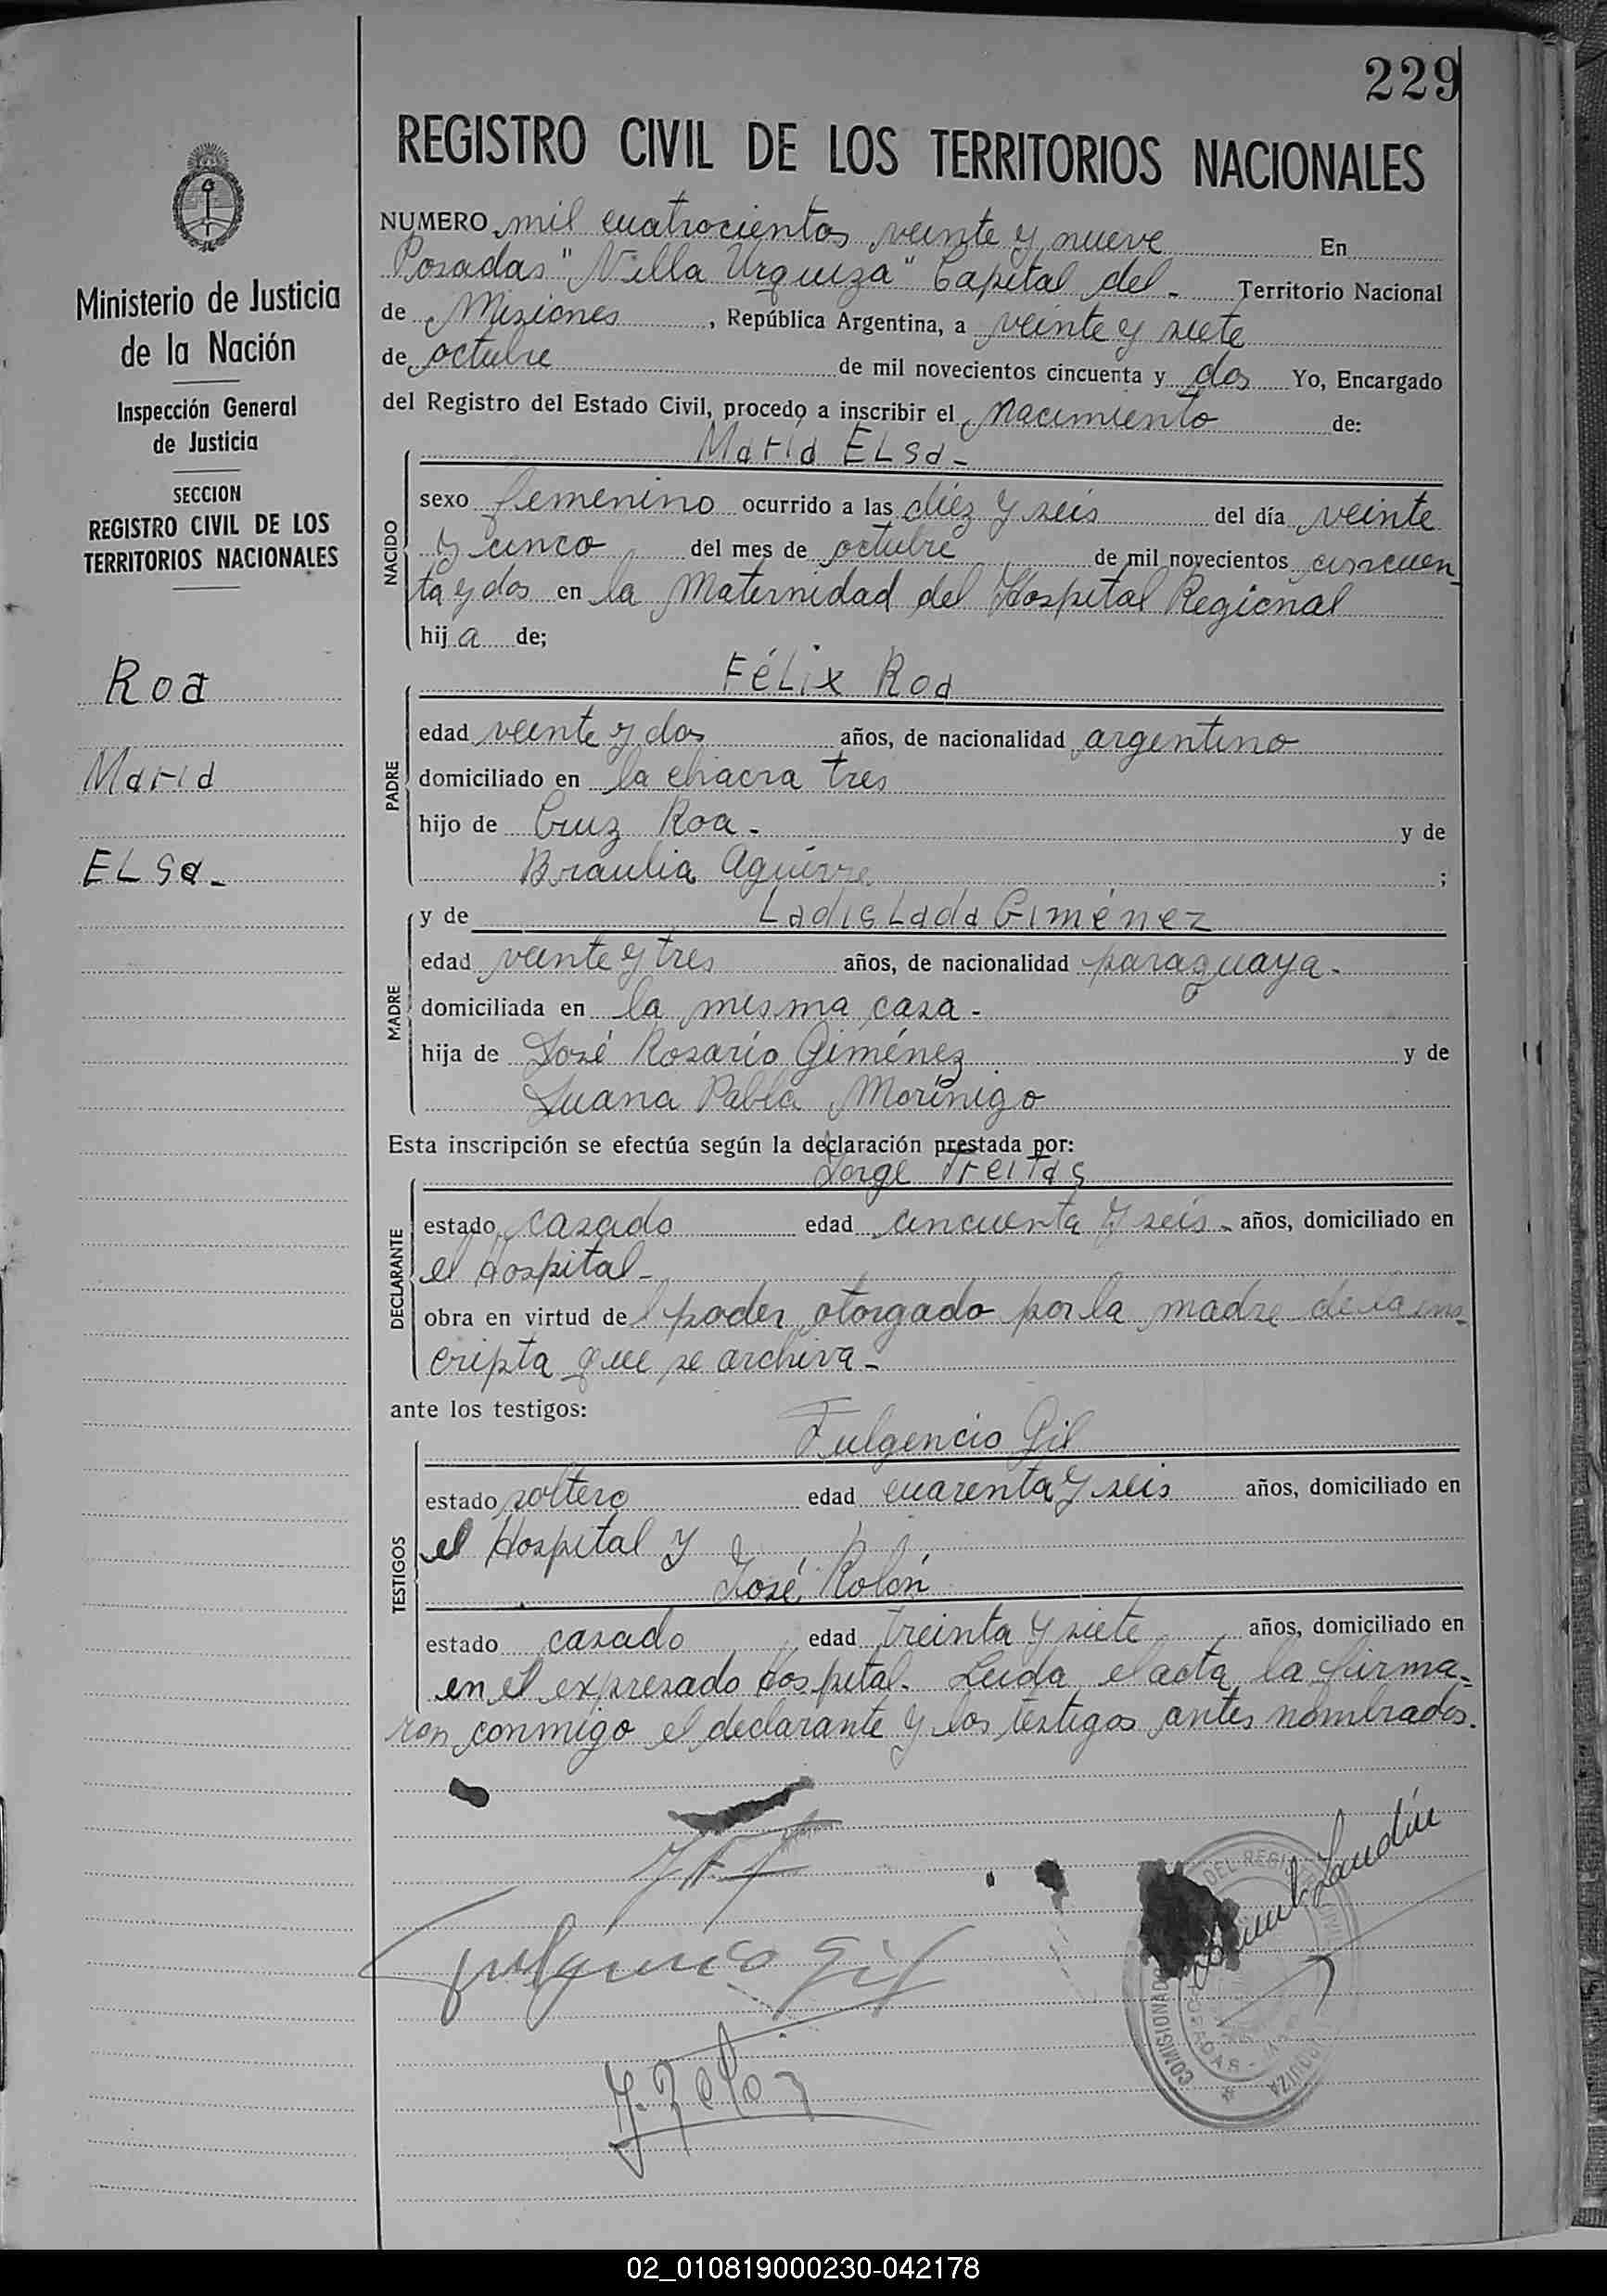 229
REGISTRO CIVIL DE LOS TERRITORIOS NACIONALES
Ministerio de Justicia
de la Nación
Inspección General
de Justicia
SECCION
REGISTRO CIVIL DE LOS
TERRITORIOS NACIONALES
Roa
María
ELSa-
NUMERO mil cuatrocientos veinte y nueve En
Posadas "Villa Urquiza" Capital del - Territorio Nacional
de Misiones, República Argentina, a veinte y siete
de octubre de mil novecientos cincuenta y dos Yo, Encargado
del Registro del Estado Civil, procedo a inscribir el nacimiento de:
NACIDO
María ELSa-
sexo femenino ocurrido a las diéz y seis del día veinte
y cinco del mes de octubre de mil novecientos cincuen
ta y dos en la Maternidad del Hospital Regional
hija de;
PADRE
Félix Roa
edad veinte y dos años, de nacionalidad argentino
domiciliado en la chacra tres
hijo de Cruz Roa - y de
Braulia Aguirre ;
MADRE
y de Ladislada Giménez
edad veinte y tres años, de nacionalidad paraguaya-
domiciliada en la misma casa-
hija de José Rosario Giménez y de
Juana Pabla Morínigo
Esta inscripción se efectúa según la declaración prestada por:
DECLARANTE
Jorge Freitas
estado casado edad cincuenta y seis- años, domiciliado en
el Hospital-
obra en virtud del poder otorgado por la madre de la ins-
cripta que se archiva-
ante los testigos:
TESTIGOS
Fulgencio Gil
estado soltero edad cuarenta y seis años, domiciliado en
el Hospital y
José Rolón
estado casado edad treinta y siete años, domiciliado en
en el expresado Hospital. Leida el acta, la firma-
ron conmigo el declarante y los testigos antes nombrados.
Fulgencio Gil
J. Rolon
Landin
DEL REGIST
COMISIONADO
POSADAS -
02_010819000230-042178